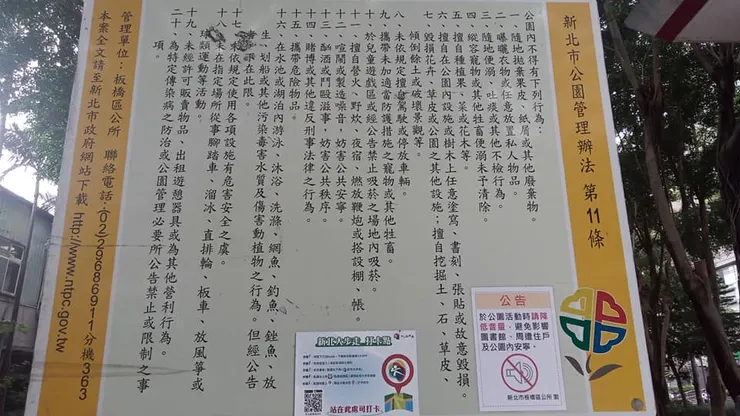 新北市公園管理辦法 第11條
公園內不得有下列行為：
一、隨地拋棄果皮、紙屑或其他廢棄物。
二、曝曬衣物或任意放置私人物品。
三、隨地便溺、吐痰或其他不檢行為。
四、縱容寵物或其他牲畜便溺未予清除。
五、擅自種植果、菜或花木等。
六、擅自在公園內設施或樹木上任意塗寫、書刻、張貼或故意毀損。
七、毀損花卉、草皮或公園之其他設施；擅自挖掘土、石、草皮、
傾倒餘土或破壞景觀等。
八、未依規定擅意駕駛或停放車輛。
九、攜帶未加適當防護措施之寵物或其他牲畜。
十、於兒童遊戲區或經公告禁止吸菸之場地內吸菸。
十一、擅自營火、野炊、夜宿、燃放鞭炮或搭設棚、帳。
十二、喧鬧或製造噪音，妨害公共安寧。
十三、酗酒或鬥毆滋事，妨害公共秩序。
十四、賭博或其他違反刑事法律之行為。
十五、攜帶危險物品。
十六、在水池或湖泊內游泳、沐浴、洗滌、網魚、釣魚、銼魚、放
生、划船或其他污染毒害水質及傷害動植物之行為。但經公告
者不在此限。
十七、未依規定使用各項設施有危害安全之虞。
十八、未在指定場所從事腳踏車、溜冰、直排輪、板車、放風箏或
球類運動等活動。
十九、未經許可販賣物品、出租遊憩器具或為其他營利行為。
二十、為特定傳染病之防治或公園管理必要所公告禁止或限制之事
項。
管理單位：板橋區公所 聯絡電話：(02)29686911分機363
本案全文請至新北市政府網站下載 http://www.ntpc.gov.tw
新北大步走 打卡點
站在此處可打卡
公告
於公園活動時請降
低音量，避免影響
圖書館、周遭住戶
及公園內安寧。
新北市板橋區公所 製